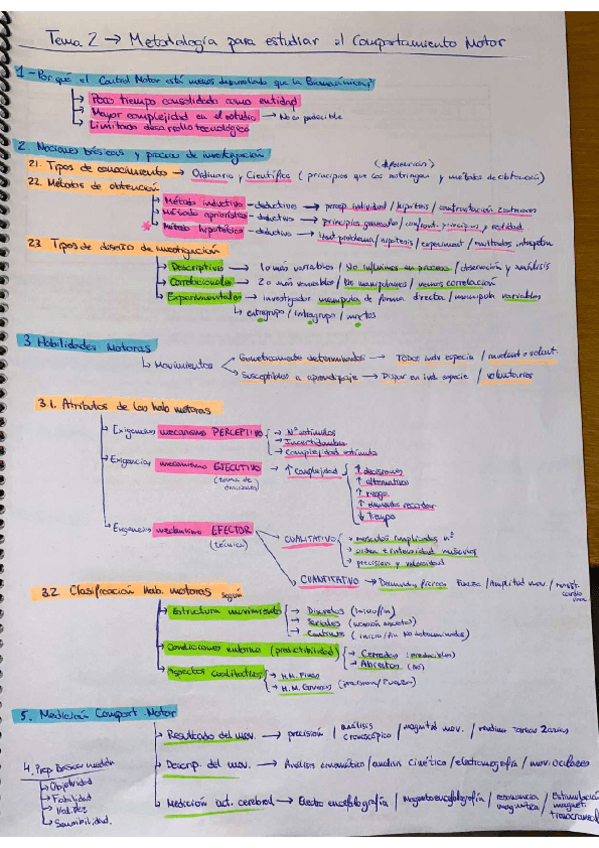 Tema 2 → Metodología para estudiar el Comportamiento Motor
1 - Por qué el Control Motor está menos desarrollado que la Biomecánica?
→ Poco tiempo consolidado como entidad
→ Mayor complejidad en el estudio → No es predecible
→ Limitado desarrollo tecnológico
2. Nociones básicas y proceso de investigación
2.1. Tipos de conocimiento → Ordinario y Científico (principios que los restringen y métodos de obtención)
2.2. Métodos de obtención
→ Método inductivo - deductivo → / hipótesis /
→ Método apriorístico - deductivo → principios generales / confront. principios y realidad
→ Método hipotético - deductivo → / hipótesis / experiment /
2.3 Tipos de diseño de investigación
→ Descriptivo → 1 o más variables / No influimos en proceso / observación y análisis
→ Correlacionales → 2 o más variables / No manipulamos / vemos correlación
→ Experimentales → investigador manipula de forma directa / manipula variables
↳ extragrupo / intragrupo / mixtos
3 Habilidades Motoras
↳ Movimientos
Genéticamente determinados → TODOS indv especie /
Susceptibles a aprendizaje → en indv. especie / voluntarios
3.1. Atributos de las hab motoras
→ Exigencias mecanismo PERCEPTIVO
→ Nº estímulos
→ Incertidumbre
→ Complejidad estímulo
→ Exigencias mecanismo EJECUTIVO → ↑ Complejidad
(toma de decisiones)
↑ decisiones
↑ alternativas
↑ riesgo
↑ elementos recordar
↓ Tiempo
→ Exigencias mecanismo EFECTOR
(técnica)
→ CUALITATIVO
→ músculos implicados n.º
→ orden e intensidad músculos
→ precisión y velocidad
→ CUANTITATIVO → Demandas físicas Fuerza / Amplitud mov /
3.2 Clasificación Hab. motoras según
→ Estructura movimiento
→ Discretas (inicio/fin)
→ Seriadas
→ Continuas (inicio/fin No determinados)
→ Condiciones entorno (predictibilidad)
→ Cerradas : predecibles
→ Abiertas (no)
→ Aspectos cualitativos
→ H.M. Finas
→ H.M. Gruesas (precisión / Fuerza)
5. Medición Comport. Motor
→ Resultado del mov. → precisión / análisis cronoscópico / magnitud mov. / tareas 2arias
→ Descrip. del mov. → Análisis cinemático / análisis cinético / electromiografía / mov. oculares
→ Medición act. cerebral → Electro encefalografía / Magnetoencefalografía / resonancia magnética / Estimulación magnet. transcraneal
4. Prop. Buscar medida
→ Objetividad
→ Fiabilidad
→ Validez
→ Sensibilidad.